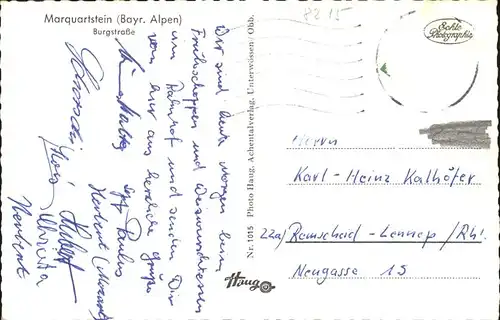 Marquartstein (Bayr. Alpen)
Burgstraße
8215
Echte
Photographie
Wir sind heute Morgen beim
Frühschoppen und Weisswurstessen
im Bahnhof und senden Dir
von hier aus herzliche Grüße
Paulus
Herbert
Ulrich
Herbert
Nr. 1015 Photo-Haug, Achentalverlag, Unterwössen / Obb.
Haug
Herrn
Karl-Heinz Kalhöfer
22a) Remscheid-Lennep/Rhl.
Neugasse 15